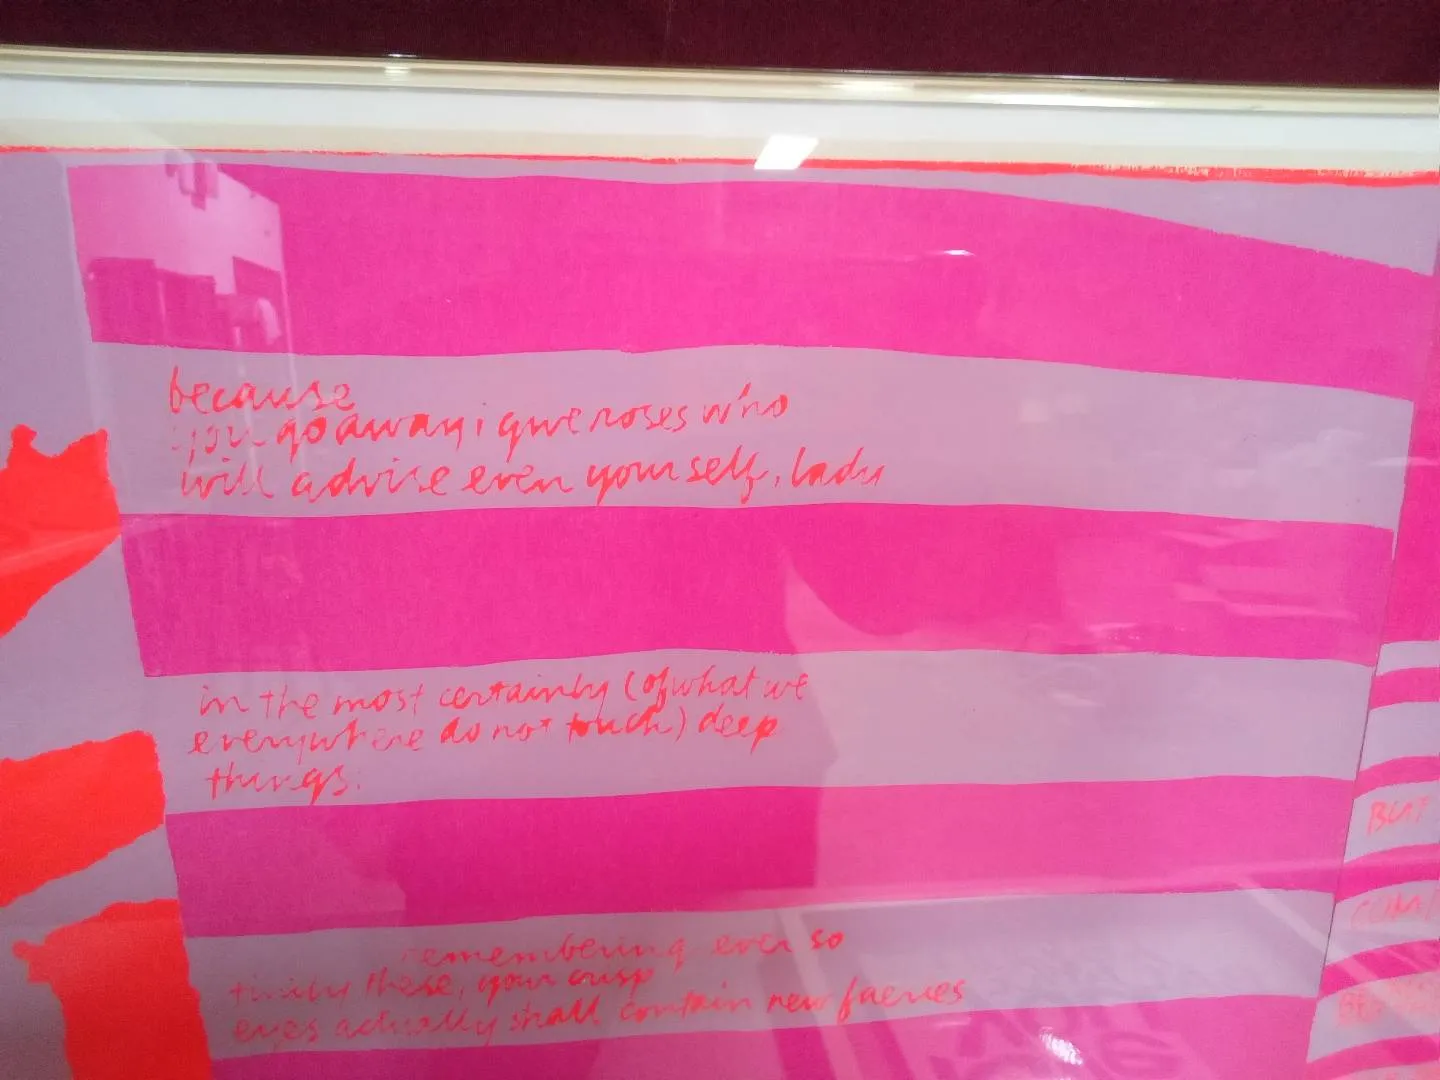 because
you go away i give roses who
will advise even yourself, lady
in the most certainly (of what we
everywhere do not touch) deep
things.
remembering ever so
tinily these, your crisp
eyes actually shall contain new faeries
BUT